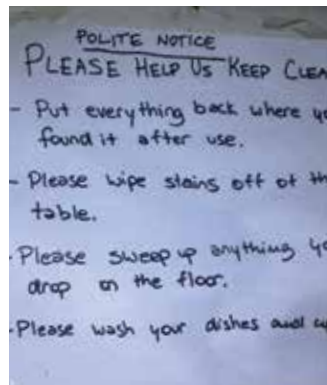 POLITE NOTICE
PLEASE HELP US KEEP CLEA
- Put everything back where yo
found it after use.
- Please wipe stains off of th
table.
- Please sweep up anything yo
drop on the floor.
- Please wash your dishes and cu